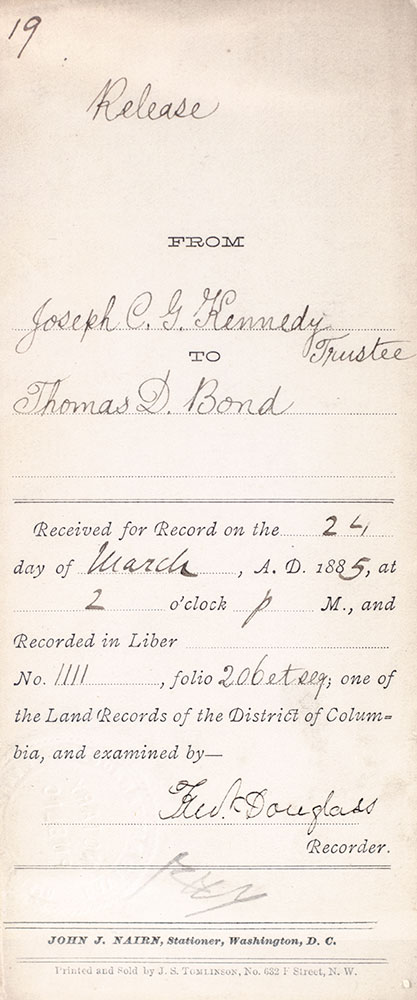 19
Release
FROM
Joseph C. G. Kennedy
Trustee
TO
Thomas D. Bond
Received for Record on the 24
day of March, A. D. 1885, at
2 o'clock p M., and
Recorded in Liber
No. 1111, folio 206 et seq; one of
the Land Records of the District of Colum=
bia, and examined by—
Fred.k Douglass
Recorder.
JOHN J. NAIRN, Stationer, Washington, D. C.
Printed and Sold by J. S. TOMLINSON, No. 632 F Street, N. W.